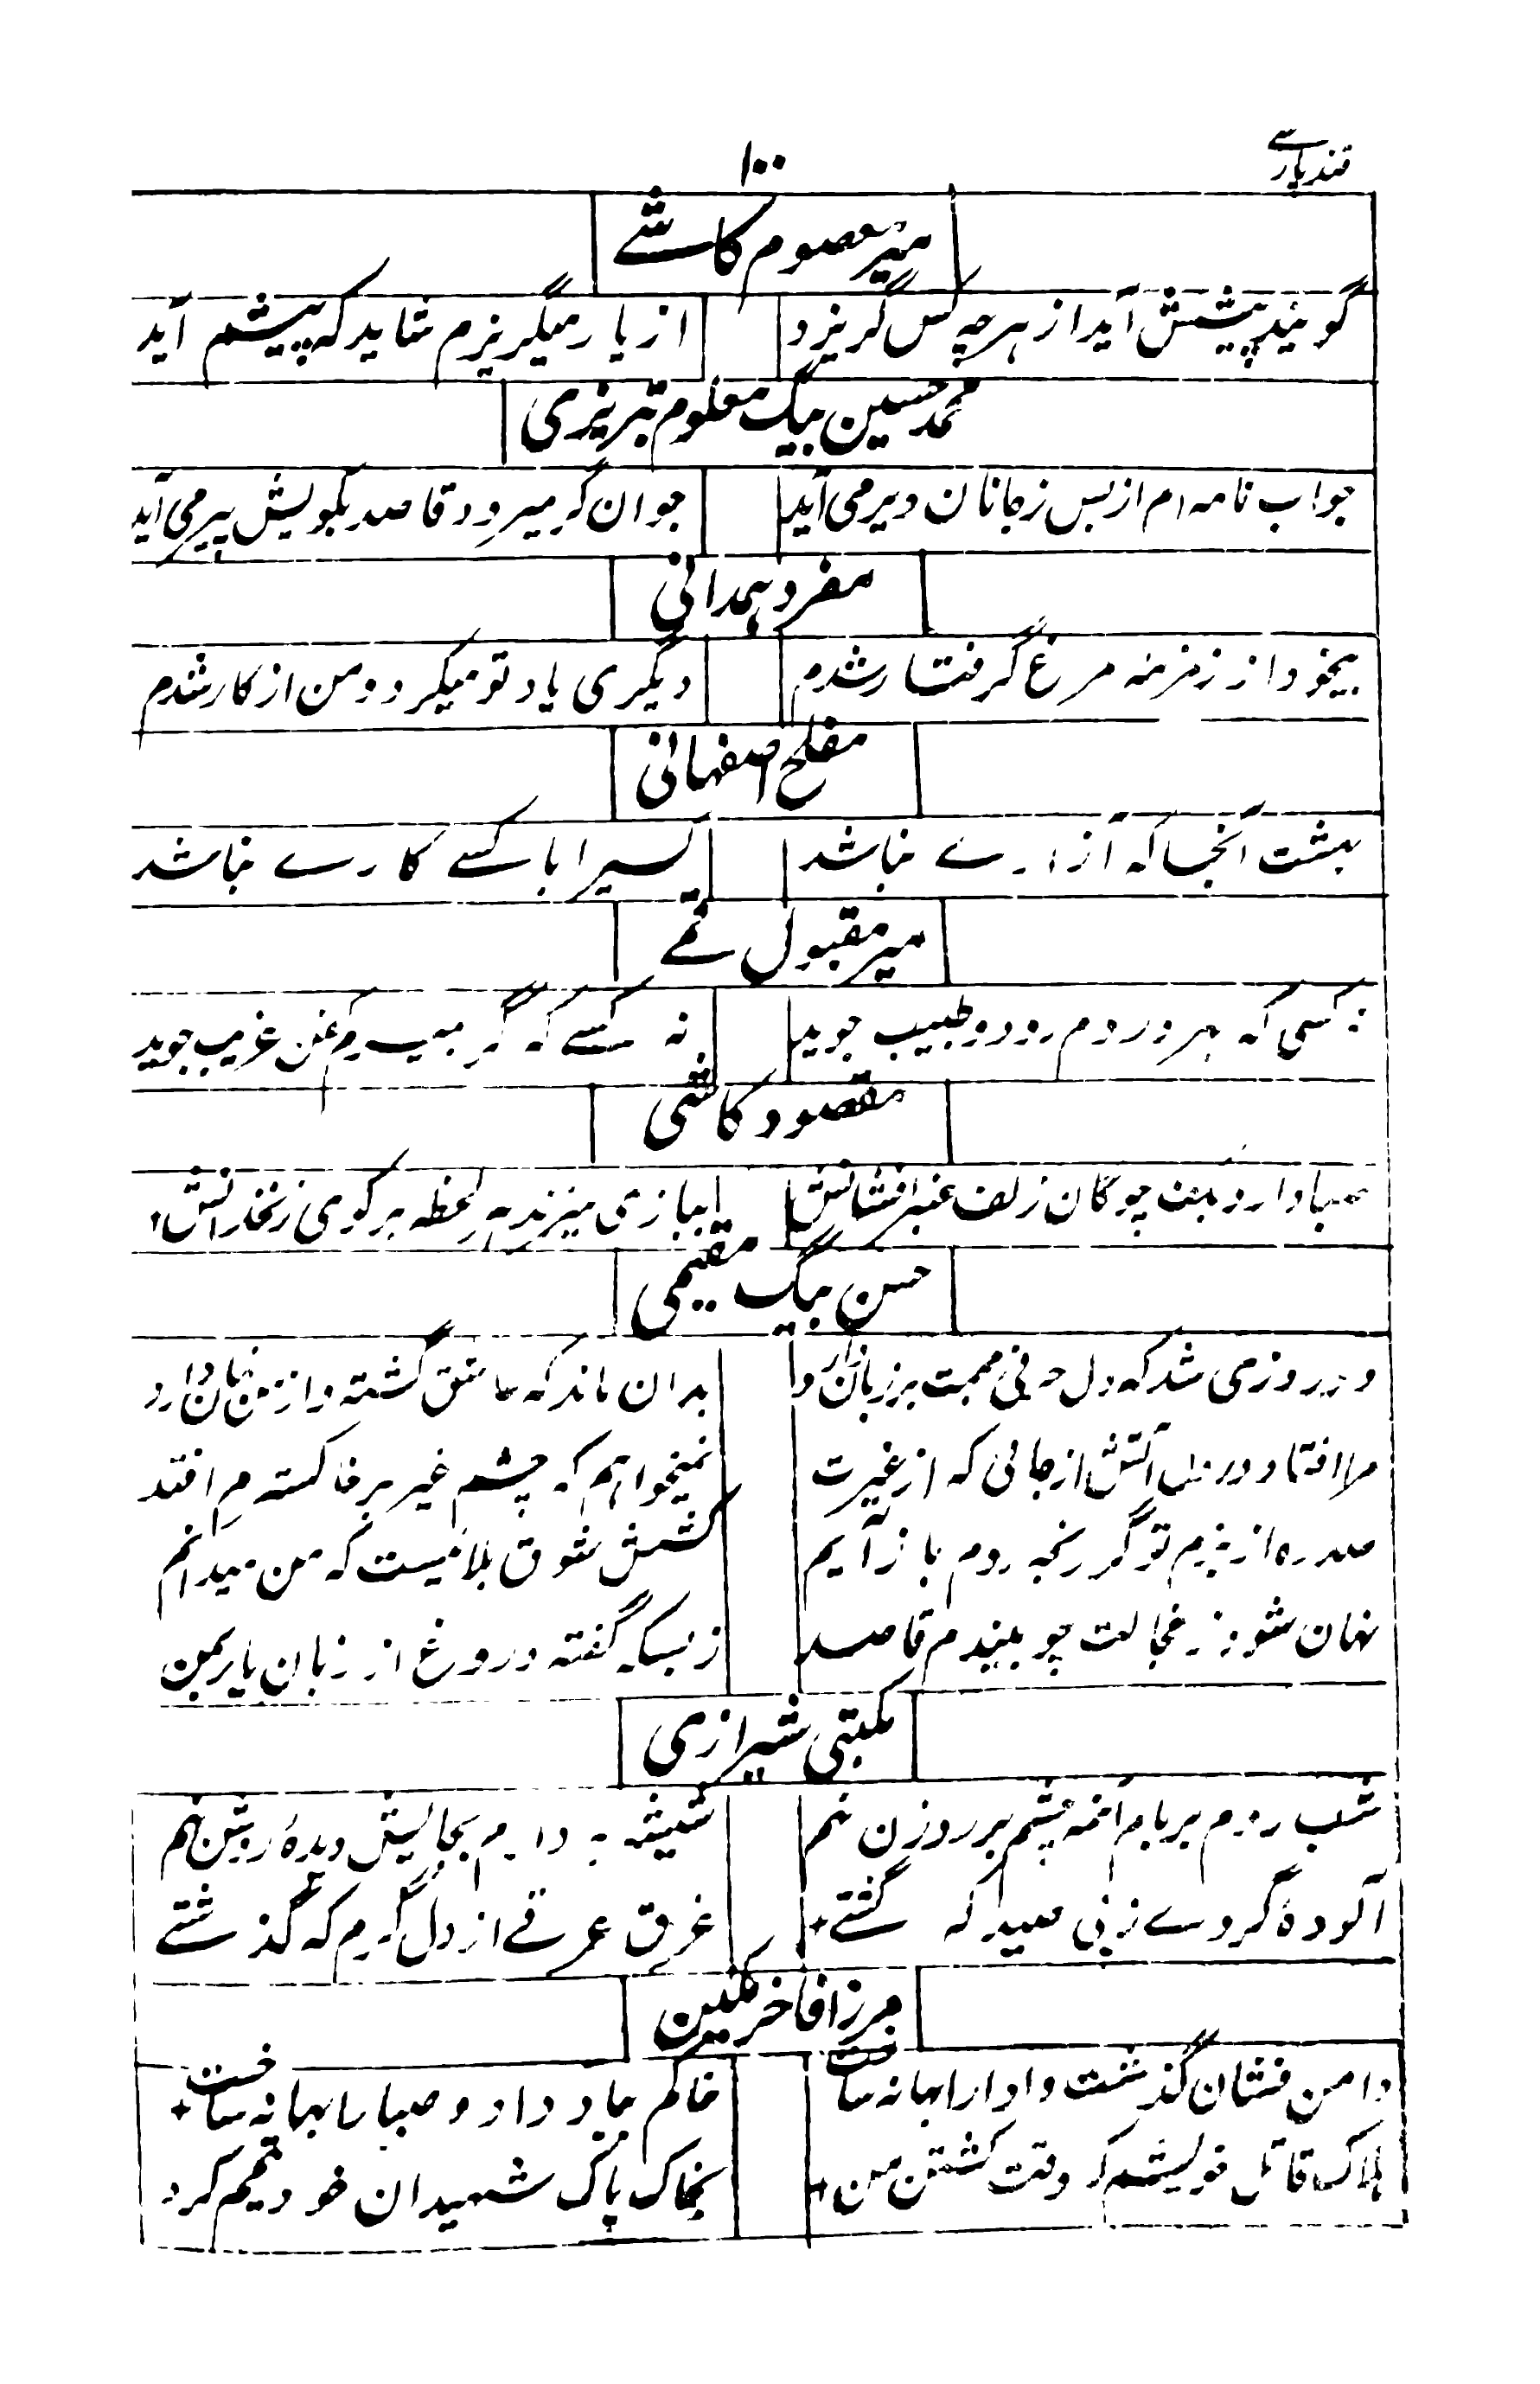 قند پارسے
۱۰۰
میر معصوم کاشے
گویند پیشش آید از هرچه کس گریزد از یار میگریزم شاید که پیشم آید
محمد حسین بیگ معلوم تبریزی
جواب نامه ام از بس ز جانان دیر می آید جوان گر میرود قاصد بکویش پیر می آید
مفرد همدانی
بیخود از زمزمه مرغ گرفتار شدم دیگری یاد تو میکرد و من از کار شدم
مفلح اصفهانی
بهشت آنجا که آزارے نباشد کسیرا با کسے کارے نباشد
میر مقبول قمے
نه کسی که بهر دردم رود و طبیب جوید نه کسے که گر بمیرم کفن غریب جوید
مقصود کاشی
صبا دارد بکف چوگان زلف عنبر افشانش ببازی میزند هر لحظه بر گوی زنخدانش
حسن بیگ مقیمی
دو روزی شد که دل حرفی محبت بر زبان دارد بدان ماند که عاشق گشته و از من نهان دارد
مرا افتاد در دل آتش از جائی که از غیرت نمیخواهم که چشم غیر بر خاکسترم افتد
صد ره از بزم تو گر رنجه روم باز آیم کشش شوق بلائیست که من میدانم
نهان شود ز خجالت چو بیندم قاصد ز بسکه گفته دروغ از زبان یار بمن
مکتبی شیرازی
شب روم بر بام آن مه چشم بر روزن نهم شیشه بردارم بجایش دیدهٔ روشن نهم
آلودهٔ گردے ز پی صید که گشتے غرق عرقے از دل گرم که گذشتے
مرزا فاخر مکین
دامن فشان گذشت و ادا را بهانه ساخت خاکم بباد داد و صبا را بهانه ساخت
هلاک قاتل خویشم که وقت کشتن من بخاک پاک شهیدان خود قسم کرد